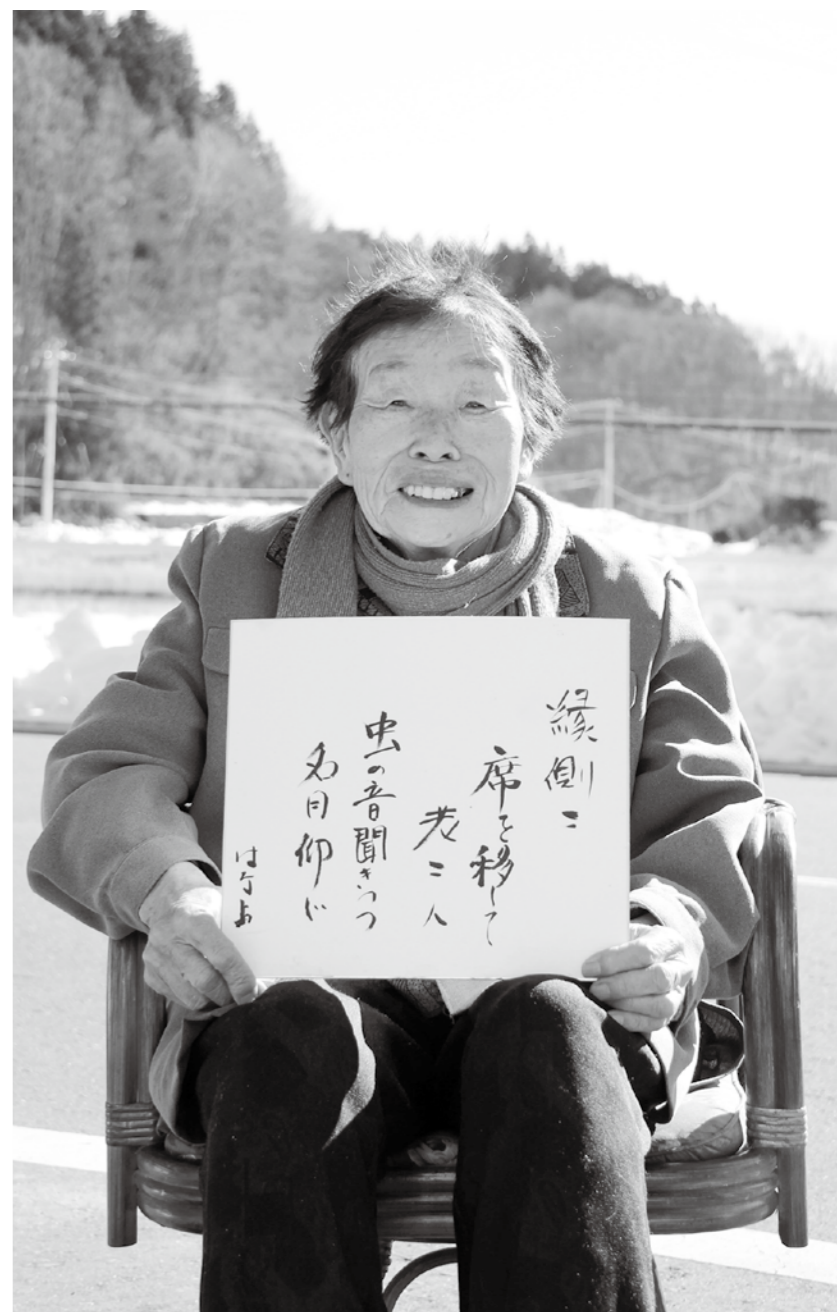 縁側ニ
席を移して
老二人
虫の音聞きつつ
名月仰ぐ
はなよ